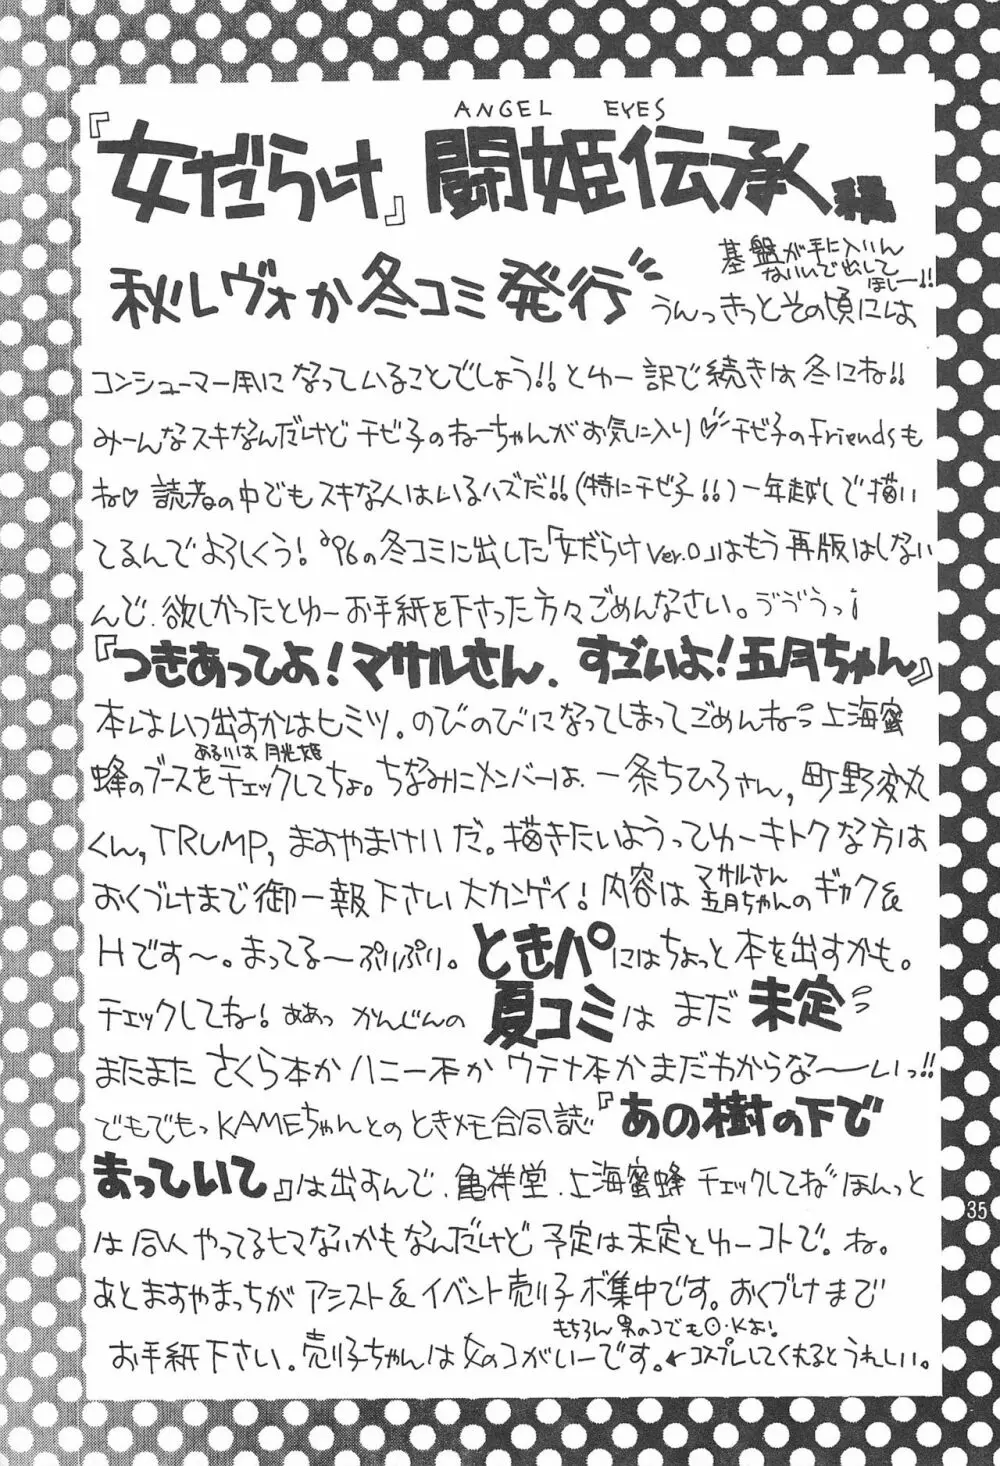 ANGEL EYES
『女だらけ』闘姫伝承編
秋レヴォか冬コミ発行
基盤が手に入いん
ないんで出して
ほしー!!
うんっきっとその頃には
コンシューマー用になっていることでしょう!!とゆー訳で続きは冬にね!!
みーんなスキなんだけどチビ子のねーちゃんがお気に入り♡チビ子のFriendsも
ね♡読者の中でもスキな人はいるハズだ!!(特にチビ子!!)一年越しで描い
てるんでよろしくう!'96の冬コミに出した「女だらけVer.0」はもう再版はしない
んで、欲しかったとゆーお手紙を下さった方々ごめんなさい。ゔゔうっ¡
『つきあってよ!マサルさん、すごいよ!五月ちゃん』
本はいつ出すかはヒミツ。のびのびになってしまってごめんね 上海蜜
あるいは 月光姫
蜂のブースをチェックしてちょ。ちなみにメンバーは、一条ちひろさん,町野変丸
くん,TRUMP,ますやまけいだ。描きたいようってゆーキトクな方は
おくづけまで御一報下さい大カンゲイ!内容はマサルさん五月ちゃんのギャグ&
Hです〜。まってる〜ぷりぷり。ときパにはちょっと本を出すかも。
チェックしてね!ああっ かんじんの夏コミはまだ未定
またまたさくら本かハニー本かウテナ本かまだわからな〜ーいっ!!
でもでもっKAMEちゃんとのときメモ合同誌『あの樹の下で
まっていて』は出すんで、亀祥堂、上海蜜蜂チェックしてね ほんっと
は同人やってるヒマないかもなんだけど予定は未定とゆーコトで。ね。
あとますやまっちがアシスト&イベント売り子ボ集中です。おくづけまで
もちろん男のコでもO・Kよ!
お手紙下さい。売り子ちゃんは女のコがいーです。←コスプレしてくれるとうれしい。
35